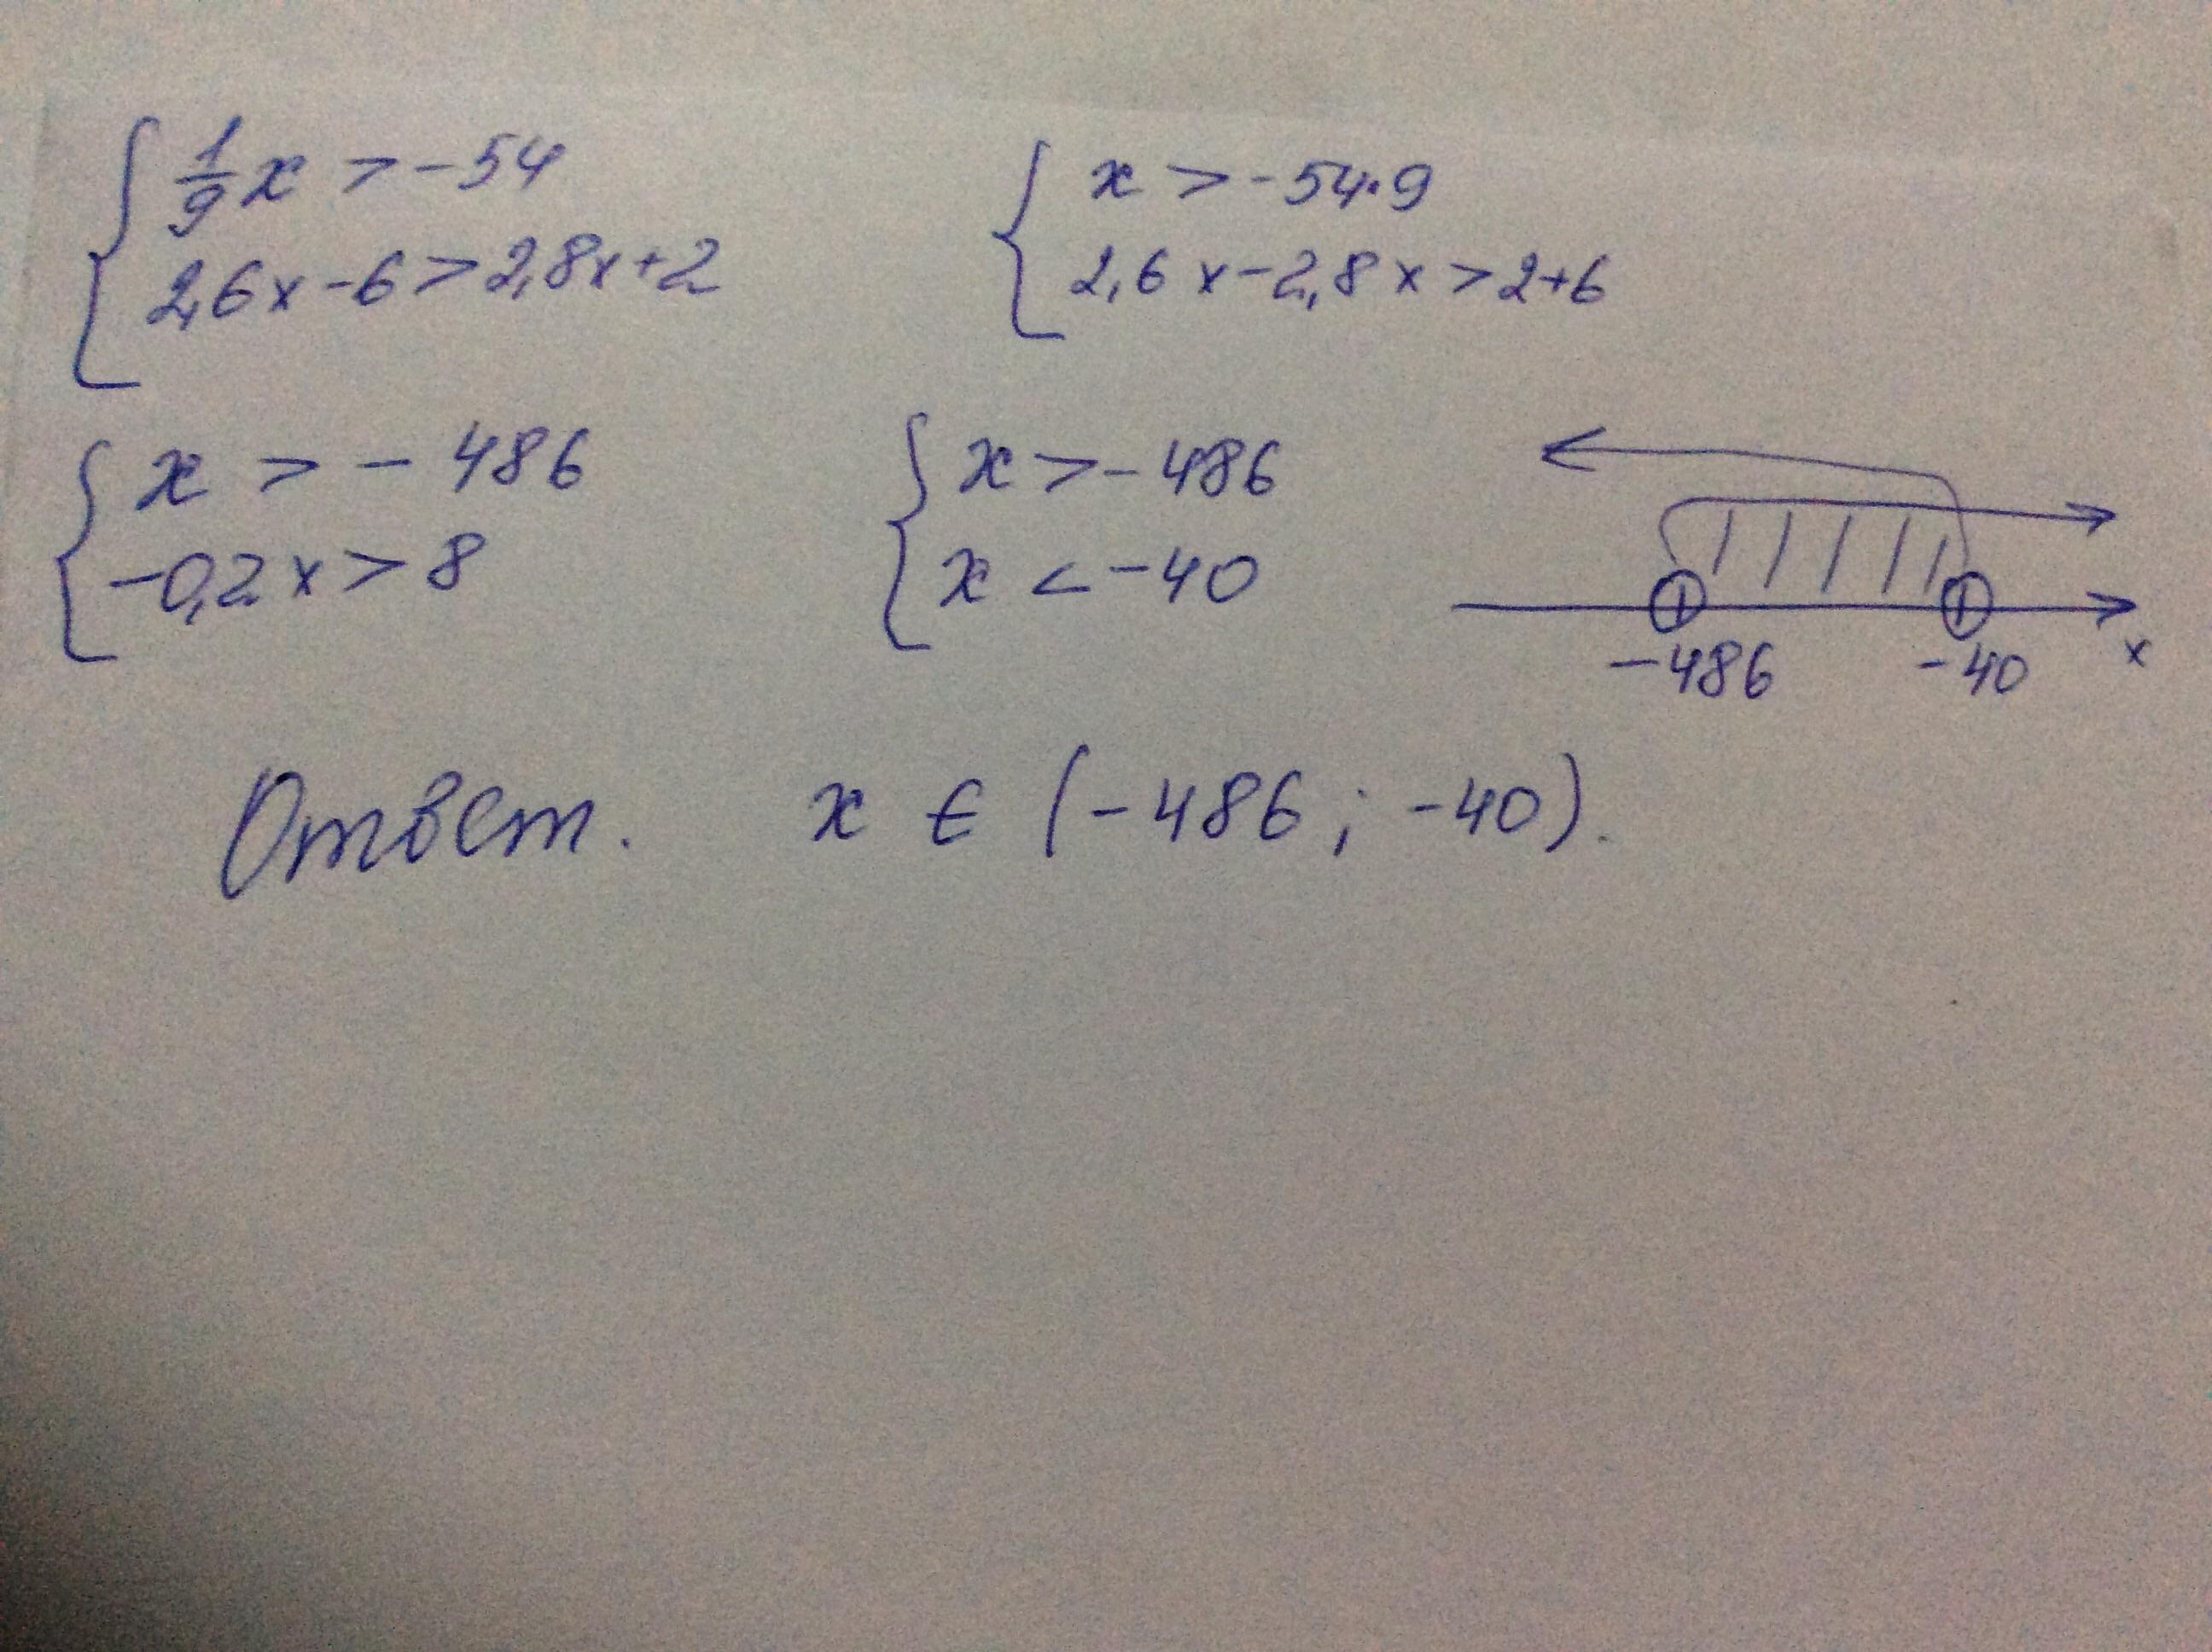 { 1/9 x > -54
2,6x - 6 > 2,8x + 2
{ x > -54·9
2,6x - 2,8x > 2+6
{ x > -486
-0,2x > 8
{ x > -486
x < -40
-486 -40 x
Ответ. x ∈ (-486 ; -40).